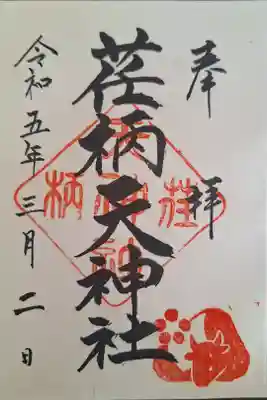 奉拝
荏柄天神社
令和五年三月二日